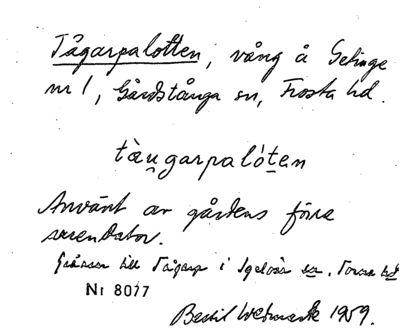 Tågarpalotten, vång å Getinge
nr 1, Gårdstånga sn, Frosta hd.
tàu̯garpaló̱ten
Använt av gårdens förre
arrendator.
Gränsar till Tågarp i Igelösa sn, Torna hd
Nr 8077
Bertil 1959.